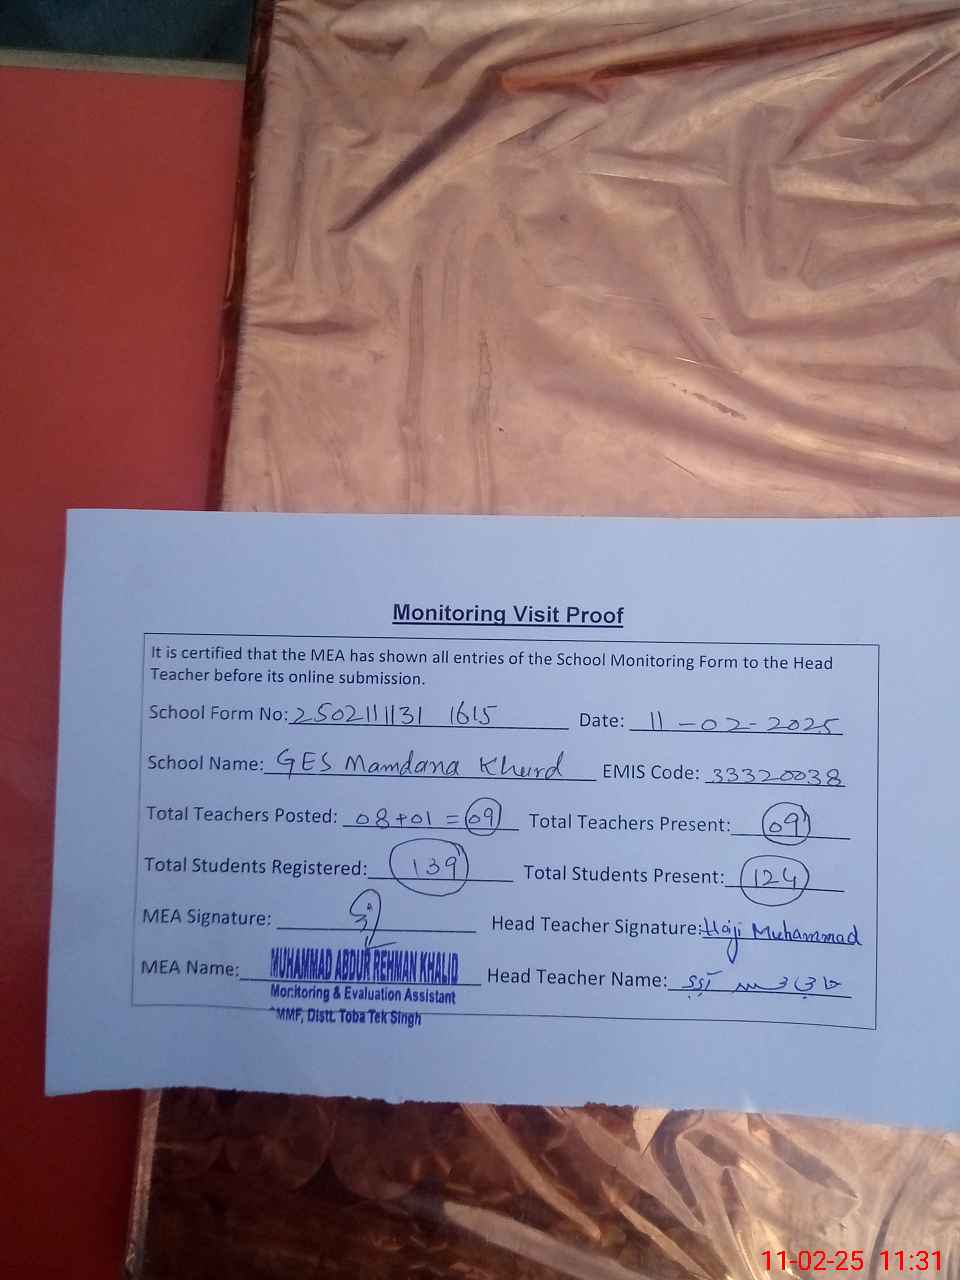 Monitoring Visit Proof
It is certified that the MEA has shown all entries of the School Monitoring Form to the Head
Teacher before its online submission.
School Form No: 2502111131 1615 Date: 11-02-2025
School Name: GES Mamdana Khurd EMIS Code: 33320038
Total Teachers Posted: 08+01=09 Total Teachers Present: 09
Total Students Registered: 139 Total Students Present: 124
MEA Signature: Head Teacher Signature: Haji Muhammad
MEA Name: MUHAMMAD ABDUR REHMAN KHALID Head Teacher Name:
Monitoring & Evaluation Assistant
MMF, Distt. Toba Tek Singh
11-02-25 11:31